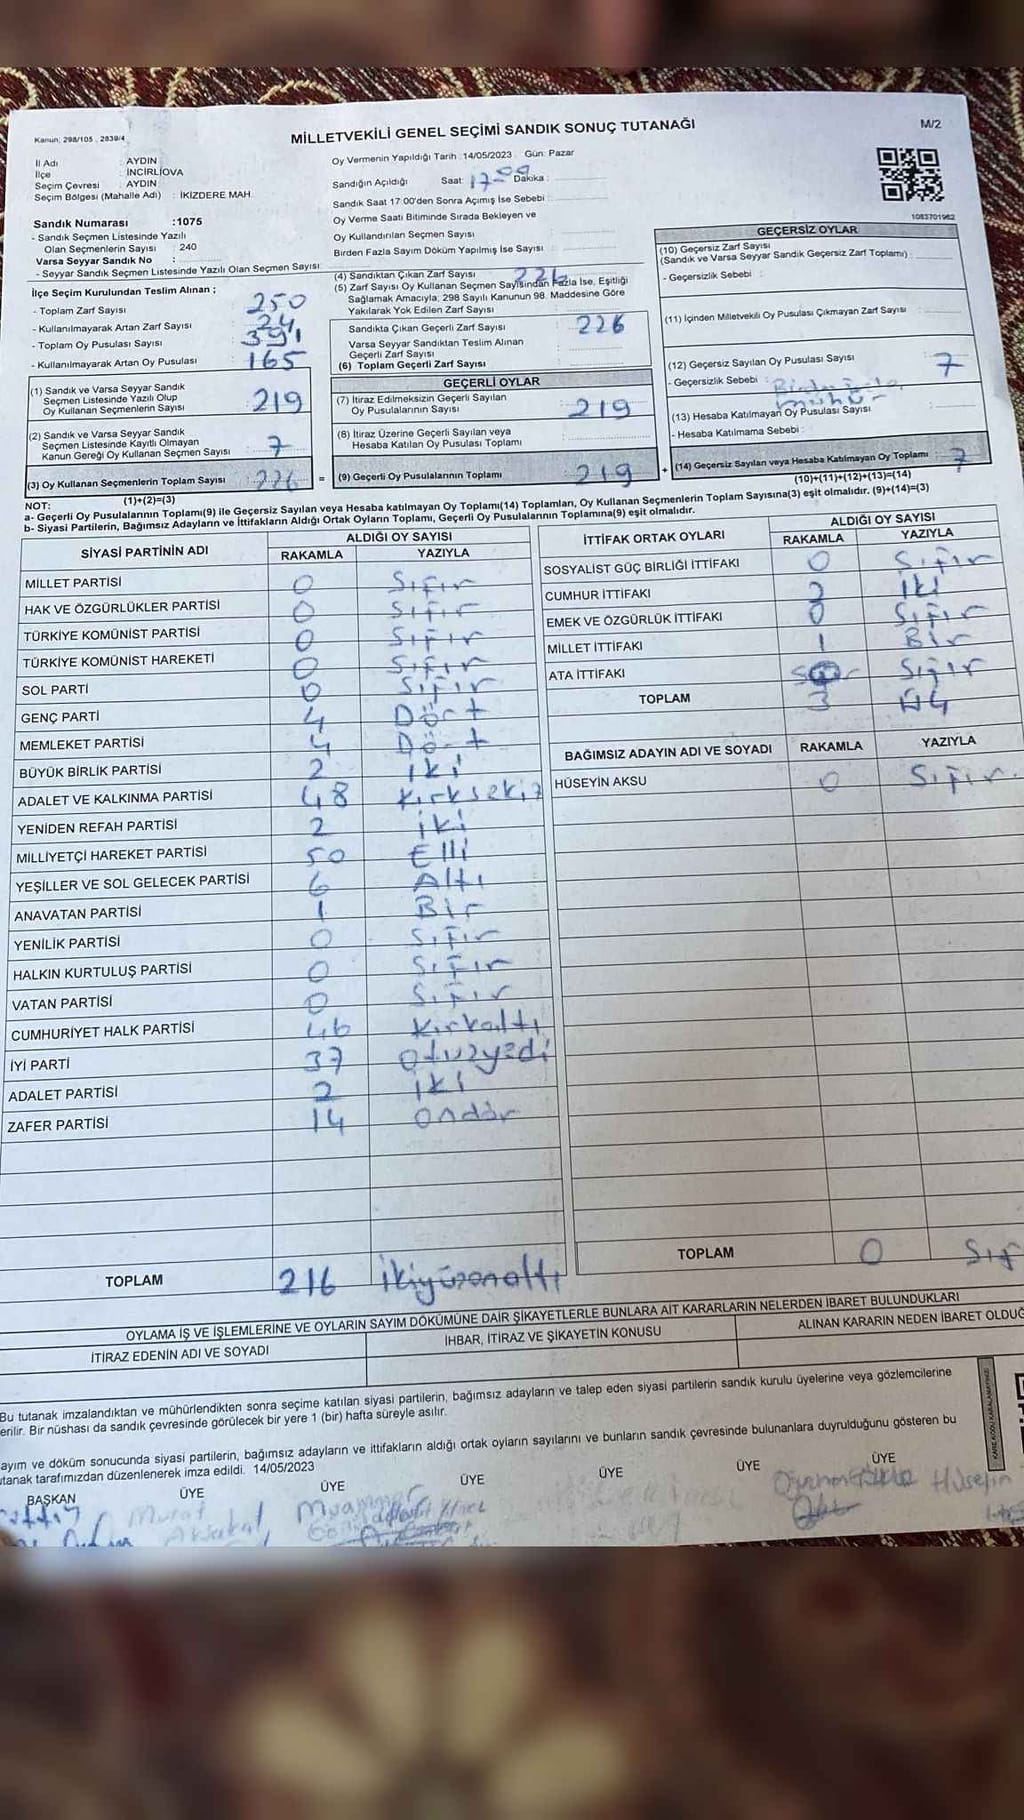 Kanun: 298/105 , 2839/4
MİLLETVEKİLİ GENEL SEÇİMİ SANDIK SONUÇ TUTANAĞI
M/2
İl Adı : AYDIN
İlçe : İNCİRLİOVA
Seçim Çevresi : AYDIN
Seçim Bölgesi (Mahalle Adı) : İKİZDERE MAH.
Sandık Numarası :1075
- Sandık Seçmen Listesinde Yazılı
Olan Seçmenlerin Sayısı : 240
Varsa Seyyar Sandık No :
- Seyyar Sandık Seçmen Listesinde Yazılı Olan Seçmen Sayısı:
Oy Vermenin Yapıldığı Tarih :14/05/2023 Gün: Pazar
Sandığın Açıldığı Saat: 17:00 Dakika :
Sandık Saat 17:00'den Sonra Açımış İse Sebebi :
Oy Verme Saati Bitiminde Sırada Bekleyen ve
Oy Kullandırılan Seçmen Sayısı
Birden Fazla Sayım Döküm Yapılmış İse Sayısı :
1083701962
İlçe Seçim Kurulundan Teslim Alınan ;
- Toplam Zarf Sayısı : 250
- Kullanılmayarak Artan Zarf Sayısı : 24
- Toplam Oy Pusulası Sayısı : 391
- Kullanılmayarak Artan Oy Pusulası : 165
(1) Sandık ve Varsa Seyyar Sandık
Seçmen Listesinde Yazılı Olup
Oy Kullanan Seçmenlerin Sayısı : 219
(2) Sandık ve Varsa Seyyar Sandık
Seçmen Listesinde Kayıtlı Olmayan
Kanun Gereği Oy Kullanan Seçmen Sayısı : 7
(3) Oy Kullanan Seçmenlerin Toplam Sayısı : 226
(1)+(2)=(3)
(4) Sandıktan Çıkan Zarf Sayısı : 226
(5) Zarf Sayısı Oy Kullanan Seçmen Sayısından Fazla İse, Eşitliği
Sağlamak Amacıyla, 298 Sayılı Kanunun 98. Maddesine Göre
Yakılarak Yok Edilen Zarf Sayısı :
Sandıkta Çıkan Geçerli Zarf Sayısı : 226
Varsa Seyyar Sandıktan Teslim Alınan
Geçerli Zarf Sayısı :
(6) Toplam Geçerli Zarf Sayısı :
GEÇERLİ OYLAR
(7) İtiraz Edilmeksizin Geçerli Sayılan
Oy Pusulalarının Sayısı : 219
(8) İtiraz Üzerine Geçerli Sayılan veya
Hesaba Katılan Oy Pusulası Toplamı :
= (9) Geçerli Oy Pusulalarının Toplamı : 219 +
GEÇERSİZ OYLAR
(10) Geçersiz Zarf Sayısı
(Sandık ve Varsa Seyyar Sandık Geçersiz Zarf Toplamı) :
- Geçersizlik Sebebi :
(11) İçinden Milletvekili Oy Pusulası Çıkmayan Zarf Sayısı :
(12) Geçersiz Sayılan Oy Pusulası Sayısı : 7
- Geçersizlik Sebebi : Birden fazla
mühür
(13) Hesaba Katılmayan Oy Pusulası Sayısı :
- Hesaba Katılmama Sebebi :
(14) Geçersiz Sayılan veya Hesaba Katılmayan Oy Toplamı : 7
(10)+(11)+(12)+(13)=(14)
NOT:
a- Geçerli Oy Pusulalarının Toplamı(9) ile Geçersiz Sayılan veya Hesaba katılmayan Oy Toplamı(14) Toplamları, Oy Kullanan Seçmenlerin Toplam Sayısına(3) eşit olmalıdır. (9)+(14)=(3)
b- Siyasi Partilerin, Bağımsız Adayların ve İttifakların Aldığı Ortak Oyların Toplamı, Geçerli Oy Pusulalarının Toplamına(9) eşit olmalıdır.
SİYASİ PARTİNİN ADI ALDIĞI OY SAYISI
RAKAMLA YAZIYLA
MİLLET PARTİSİ 0 Sıfır
HAK VE ÖZGÜRLÜKLER PARTİSİ 0 Sıfır
TÜRKİYE KOMÜNİST PARTİSİ 0 Sıfır
TÜRKİYE KOMÜNİST HAREKETİ 0 Sıfır
SOL PARTİ 0 Sıfır
GENÇ PARTİ 4 Dört
MEMLEKET PARTİSİ 4 Dört
BÜYÜK BİRLİK PARTİSİ 2 iki
ADALET VE KALKINMA PARTİSİ 48 Kırksekiz
YENİDEN REFAH PARTİSİ 2 iki
MİLLİYETÇİ HAREKET PARTİSİ 50 Elli
YEŞİLLER VE SOL GELECEK PARTİSİ 6 Altı
ANAVATAN PARTİSİ 1 Bir
YENİLİK PARTİSİ 0 Sıfır
HALKIN KURTULUŞ PARTİSİ 0 Sıfır
VATAN PARTİSİ 0 Sıfır
CUMHURİYET HALK PARTİSİ 46 Kırkaltı
İYİ PARTİ 37 otuzyedi
ADALET PARTİSİ 2 iki
ZAFER PARTİSİ 14 ondör
TOPLAM 216 ikiyüzonaltı
İTTİFAK ORTAK OYLARI ALDIĞI OY SAYISI
RAKAMLA YAZIYLA
SOSYALİST GÜÇ BİRLİĞİ İTTİFAKI 0 Sıfır
CUMHUR İTTİFAKI 2 iki
EMEK VE ÖZGÜRLÜK İTTİFAKI 0 Sıfır
MİLLET İTTİFAKI 1 Bir
ATA İTTİFAKI Sıfır
TOPLAM 3
BAĞIMSIZ ADAYIN ADI VE SOYADI RAKAMLA YAZIYLA
HÜSEYİN AKSU 0 Sıfır
TOPLAM 0 Sıf
OYLAMA İŞ VE İŞLEMLERİNE VE OYLARIN SAYIM DÖKÜMÜNE DAİR ŞİKAYETLERLE BUNLARA AİT KARARLARIN NELERDEN İBARET BULUNDUKLARI
İTİRAZ EDENİN ADI VE SOYADI İHBAR, İTİRAZ VE ŞİKAYETİN KONUSU ALINAN KARARIN NEDEN İBARET OLDUĞ
Bu tutanak imzalandıktan ve mühürlendikten sonra seçime katılan siyasi partilerin, bağımsız adayların ve talep eden siyasi partilerin sandık kurulu üyelerine veya gözlemcilerine
erilir. Bir nüshası da sandık çevresinde görülecek bir yere 1 (bir) hafta süreyle asılır.
ayım ve döküm sonucunda siyasi partilerin, bağımsız adayların ve ittifakların aldığı ortak oyların sayılarını ve bunların sandık çevresinde bulunanlara duyrulduğunu gösteren bu
utanak tarafımızdan düzenlenerek imza edildi. 14/05/2023
BAŞKAN ÜYE ÜYE ÜYE ÜYE ÜYE ÜYE
Murat Muammer Hüseyin